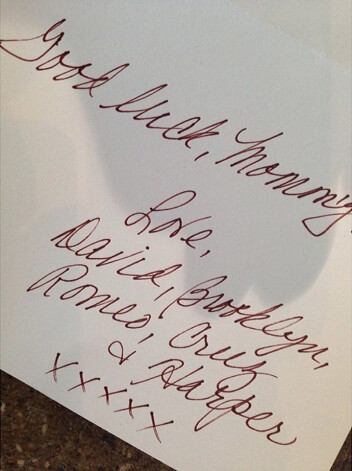 Good luck, Mommy
Love,
David, Brooklyn,
Romeo, Cruz
& Harper
xxxxx